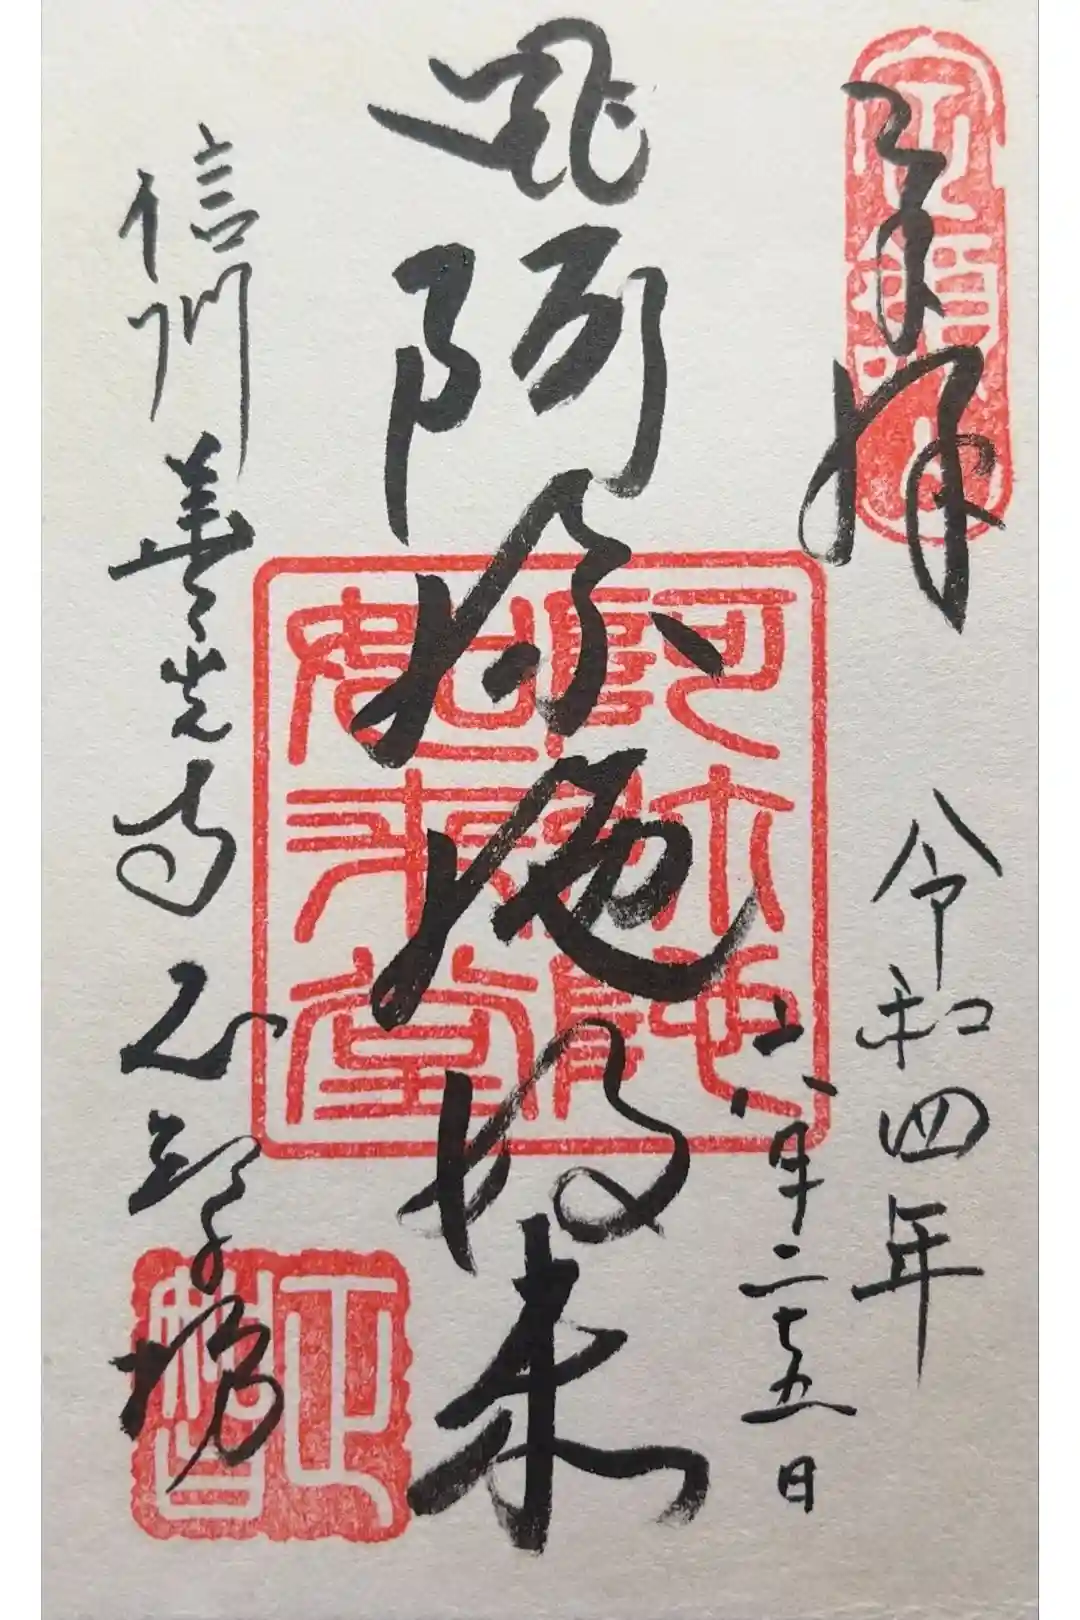 定額山
奉拝
令和四年
六月二十五日
阿弥陀如来
信州善光寺正智坊
正智